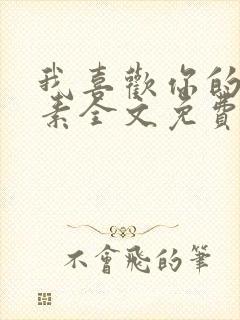 我喜歡你的
素全文免費
不會飛的筆